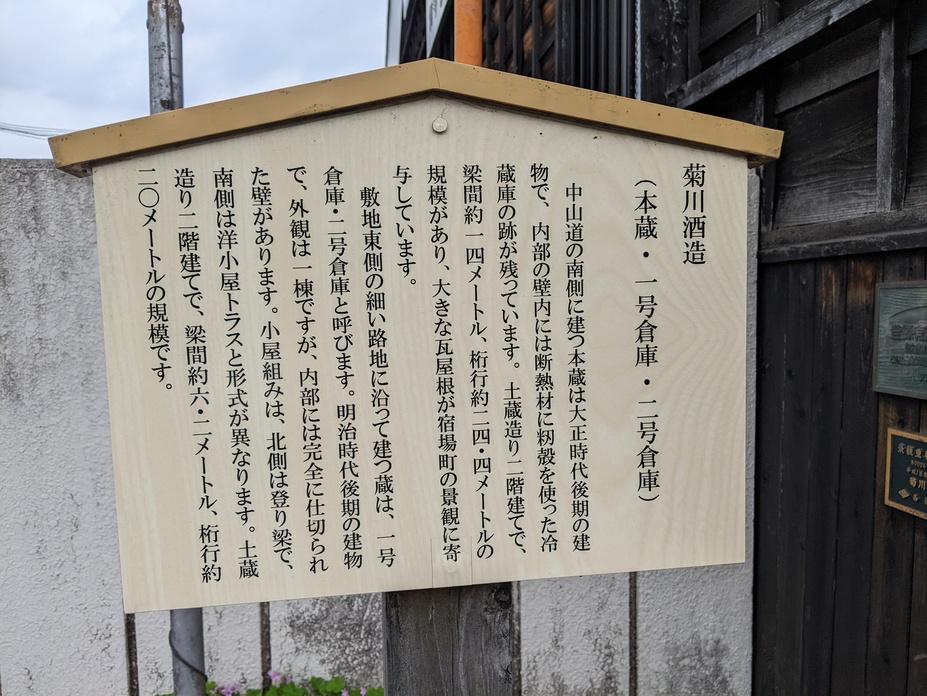 菊川酒造
（本蔵・一号倉庫・二号倉庫）
中山道の南側に建つ本蔵は大正時代後期の建
物で、内部の壁内には断熱材に籾殻を使った冷
蔵庫の跡が残っています。土蔵造り二階建てで、
梁間約一四メートル、桁行約二四・四メートルの
規模があり、大きな瓦屋根が宿場町の景観に寄
与しています。
敷地東側の細い路地に沿って建つ蔵は、一号
倉庫・二号倉庫と呼びます。明治時代後期の建物
で、外観は一棟ですが、内部には完全に仕切られ
た壁があります。小屋組みは、北側は登り梁で、
南側は洋小屋トラスと形式が異なります。土蔵
造り二階建てで、梁間約六・二メートル、桁行約
二〇メートルの規模です。
菊川